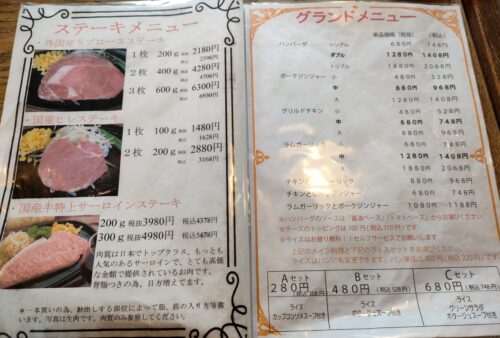 ステーキメニュー
・外国産リブロースステーキ
1枚 200g 税抜 2180円
税込 2398円
2枚 400g 税抜 4280円
税込 4708円
3枚 600g 税抜 6300円
税込 6930円
・国産ヒレステーキ
1枚 100g 税抜 1480円
税込 1628円
2枚 200g 税抜 2880円
税込 3168円
・国産牛特上サーロインステーキ
200g 税抜3980円 税込4378円
300g 税抜4980円 税込5478円
肉質は日本でトップクラス、もっとも
人気のあるサーロインで、とても高価
な金額で提供されているお肉です。
背脂つきの為、目方増えてます。
*一本買いの為、お出しする部位によって脂、筋の入り方等違
います。写真は生肉です。肉質のみ参照してください。
グランドメニュー
単品価格（税抜） （税込）
ハンバーグ シングル 680円 748円
ダブル 1280円 1408円
トリプル 1880円 2068円
ポークジンジャー 小 480円 528円
中 880円 968円
大 1280円 1408円
グリルドチキン 小 480円 528円
中 680円 748円
大 880円 968円
ラムガーリック 小 680円 748円
中 1280円 1408円
大 1880円 2068円
チキンガーリック 880円 968円
チキンとポークジンジャー 1080円 1188円
ラムガーリックとポークジンジャー 1680円 1848円
※ハンバーグのソースは「醤油ベース」「トマトベース」からお選びください
※チーズのトッピングは100円（税込110円）です
※ライスはお替り無料！セルフサービスでお願いします
上記のメイン料理と下記のセットでセットでお選びください
ライスはパンにも変更できます。パン単品は200円（税込220円）です
Aセット
280円（税込308円）
ライス
カップコンソメスープ付き
Bセット
480円（税込528円）
ライス
ポタージュスープ付き
Cセット
680円（税込748円）
ライス
グリーンサラダ
ポタージュスープ付き